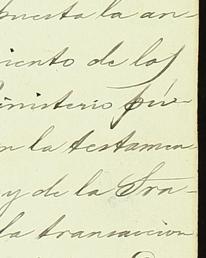 puesta la an-
iento de los
inisterio pú-
n la testamen
y de la Tra-
la transaccion